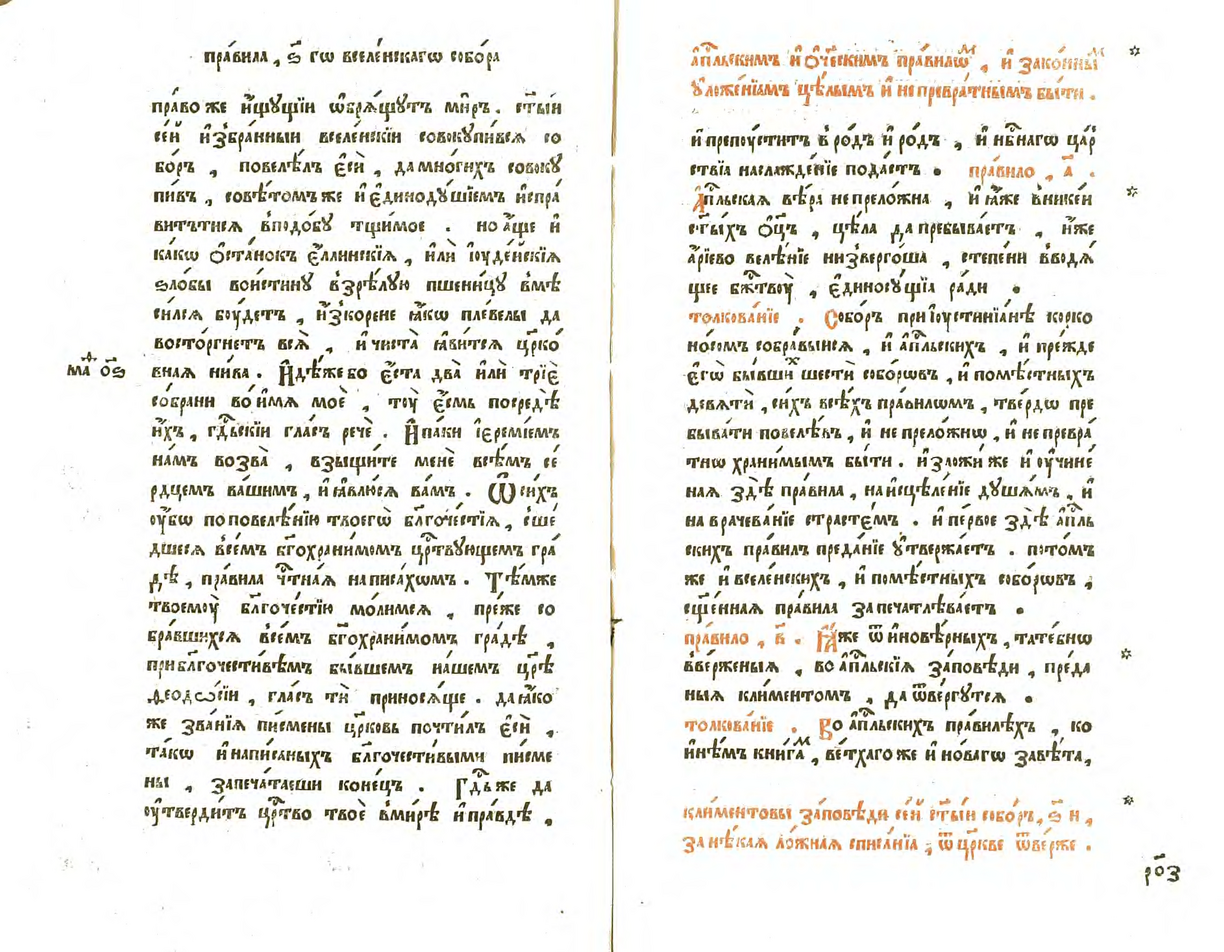 пра́вила , ѕ҃ гѡ вселе́нскагѡ собо́ра
пра́во же и҆́щущїи ѡ҆брѧ́щутъ ми́ръ . ст҃ы́и
се́й и҆збра́нныи вселе́нскїи совокупи́всѧ со
бо́ръ , повелѣ́лъ є҆сѝ , да мно́гихъ совоку
пи́въ , совѣ́томъ же и҆ є҆динодꙋ́шїемъ и҆спра
вити́тисѧ в подо́бꙋ тщи́мое . но а҆́ще и҆
ка́кѡ ѻ҆ста́нокъ є҆́ллинскїѧ , и҆лѝ і҆ꙋде́йскїѧ
ѕло́бы вои́стинꙋ в зрѣ́лꙋю пшени́цꙋ вмѣ
си́лсѧ бꙋ́детъ , и҆зкорене ꙗ҆́кѡ пле́велы да
восто́ргнетъ всѧ̀ , и҆ чиста̀ ꙗ҆ви́тсѧ цр҃ко́
внаѧ ни́ва . И҆дѣ́же бо є҆́ста два̀ и҆лѝ трїѐ
со́брани во и҆́мѧ моѐ , тꙋ̀ є҆́смь посредѣ̀
и҆́хъ , гдⷭ҇ьскїи гла́съ речѐ . И҆ па́ки і҆еремі́емъ
на́мъ возва̀ , взыщи́те менѐ всѣ́мъ се́
рдцемъ ва́шимъ , и҆ ꙗ҆влю́сѧ ва́мъ . Ѿ си́хъ
ᲂу҆́бѡ по повелѣ́нїю твоегѡ̀ бл҃гоче́стїѧ , сше́
дшесѧ в се́мъ бг҃охрани́момъ црⷭ҇твꙋющемъ гра́
дѣ , пра́вила чⷭ҇тна́ѧ написа́хѡмъ . Тѣ́мже
твоемꙋ̀ бл҃гоче́стїю мо́лимсѧ , пре́же со
бра́вшихсѧ в се́мъ бг҃охрани́момъ гра́дѣ ,
при бл҃гочести́вѣмъ бы́вшемъ на́шемъ цр҃ѣ̀
ѳеодѡ́сїи , гла́съ тѝ принося́ще . да ꙗ҆́ко
же зва́нїѧ пи́смены цр҃ковь почти́лъ є҆сѝ ,
та́кѡ и҆ напи́саныхъ бл҃гочести́выми пи́сме
ны , запечата́еши коне́цъ . Гдⷭ҇ь же да
ᲂу҆тверди́тъ црⷭ҇тво твоѐ в ми́рѣ и҆ пра́вдѣ ,
ма ѳ о҃ѕ
а҆пⷭ҇льскимъ и҆ ѻ҆те́ческимъ пра́вилѡⷨ , и҆ зако́нныⷨ *
ᲂу҆ложе́нїамъ цѣ́лымъ и҆ непревра́тнымъ бы́ти .
и҆ препꙋ́ститъ в ро́дъ и҆ ро́дъ , и҆ нбⷭ҇нагѡ ца́р
ствїа наслажде́нїе пода́стъ . пра́вило , а҃ .
А҆пⷭ҇льскаѧ вѣ́ра непрело́жна , и҆ ꙗ҆́же в нике́и *
ст҃ы́хъ ѻ҆ц҃ъ , цѣ́ла да пребыва́етъ , и҆́же
а҆́рїево велѣ́нїе низверго́ша , сте́пени вводѧ́
щее бжⷭ҇твꙋ̀ , є҆диносꙋ́щїа ра́ди .
толкова́нїе . Собо́ръ при і҆ꙋстинїа́нѣ корко
но́сомъ собра́выисѧ , и҆ а҆пⷭ҇льскихъ , и҆ пре́жде
є҆гѡ̀ бы́вшиⷯ шести́ собо́рѡвъ , и҆ помѣ́стныхъ
девѧти́ , си́хъ всѣ́хъ пра́вилѡмъ , тве́рдѡ пре
быва́ти повелѣ́въ , и҆ непрело́жнѡ , и҆ непревра́
тнѡ храни́мымъ бы́ти . и҆зложи́ же и҆ ᲂу҆чине́
наѧ здѣ̀ пра́вила , на и҆сцѣле́нїе дꙋша́мъ , и҆
на врачева́нїе страсте́мъ . и҆ пе́рвое здѣ̀ а҆пⷭ҇ль
скихъ пра́вилъ преда́нїе ᲂу҆твержа́етъ . пото́мъ
же и҆ вселе́нскихъ , и҆ помѣ́стныхъ собо́рѡвъ ,
сщ҃е́ннаѧ пра́вила запечатлѣва́етъ .
пра́вило , в҃ . Ꙗ҆́же ѿ и҆новѣ́рныхъ , та́тебнѡ
вве́рженыѧ , во а҆пⷭ҇льскїѧ за́повѣди , преда́ *
ныѧ кли́ментомъ , да ѿве́ргꙋтсѧ .
толкова́нїе . Во а҆пⷭ҇льскихъ пра́вилѣхъ , ко
и҆нѣ́мъ кни́гаⷨ , ве́тхаго же и҆ но́вагѡ завѣ́та ,
кли́ментовы за́повѣди се́й ст҃ы́и собо́ръ , ѕ҃ и , *
за нѣ́каѧ ло́жнаѧ списа́нїа , ѿ цр҃кве ѿве́рже .
рѻ҃з